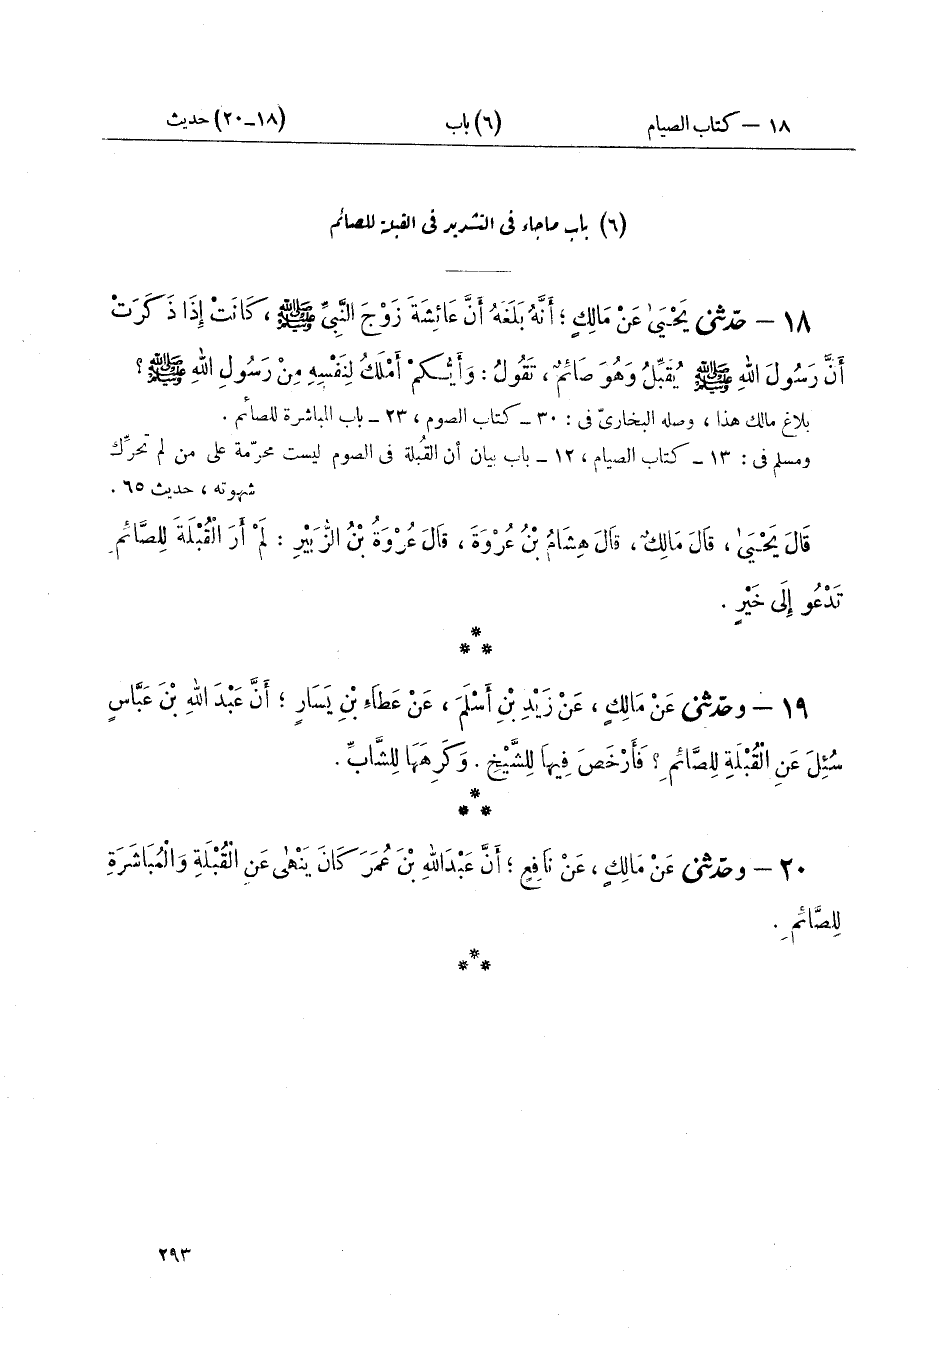 ١٨ – كتاب الصيام (٦) باب (١٨–٢٠) حديث
(٦) باب ماجاء فى التشديد فى القبلة للصائم
١٨ – حدّثنى يَحْيَىٰ عَنْ مَالِكٍ ؛ أَنَّهُ بَلَغَهُ أَنَّ عَائِشَةَ زَوْجَ النَّبِيِّ ﷺ ، كَانَتْ إِذَا ذَكَرَتْ
أَنَّ رَسُولَ اللهِ ﷺ يُقَبِّلُ وَهُوَ صَائِمٌ ، تَقُولُ : وَأَيُّكُمْ أَمْلَكُ لِنَفْسِهِ مِنْ رَسُولِ اللهِ ﷺ ؟
بلاغ مالك هذا ، وصله البخارىّ فى : ٣٠ – كتاب الصوم ، ٢٣ – باب المباشرة للصائم .
ومسلم فى : ١٣ – كتاب الصيام ، ١٢ – باب بيان أن القُبلة فى الصوم ليست محرّمة على من لم تحرِّك
شهوته ، حديث ٦٥ .
قَالَ يَحْيَىٰ ، قَالَ مَالِكٌ ، قَالَ هِشَامُ بْنُ عُرْوَةَ ، قَالَ عُرْوَةُ بْنُ الزُّبَيْرِ : لَمْ أَرَ الْقُبْلَةَ لِلصَّائِمِ
تَدْعُو إِلَى خَيْرٍ .
*
* *
١٩ – وحدّثنى عَنْ مَالِكٍ ، عَنْ زَيْدِ بْنِ أَسْلَمَ ، عَنْ عَطَاءِ بْنِ يَسَارٍ ؛ أَنَّ عَبْدَ اللهِ بْنَ عَبَّاسٍ
سُئِلَ عَنِ الْقُبْلَةِ لِلصَّائِمِ ؟ فَأَرْخَصَ فِيهَا لِلشَّيْخِ . وَكَرِهَهَا لِلشَّابِّ .
*
* *
٢٠ – وحدّثنى عَنْ مَالِكٍ ، عَنْ نَافِعٍ ؛ أَنَّ عَبْدَ اللهِ بْنَ عُمَرَ كَانَ يَنْهَى عَنِ الْقُبْلَةِ وَالْمُبَاشَرَةِ
لِلصَّائِمِ .
*
* *
٢٩٣